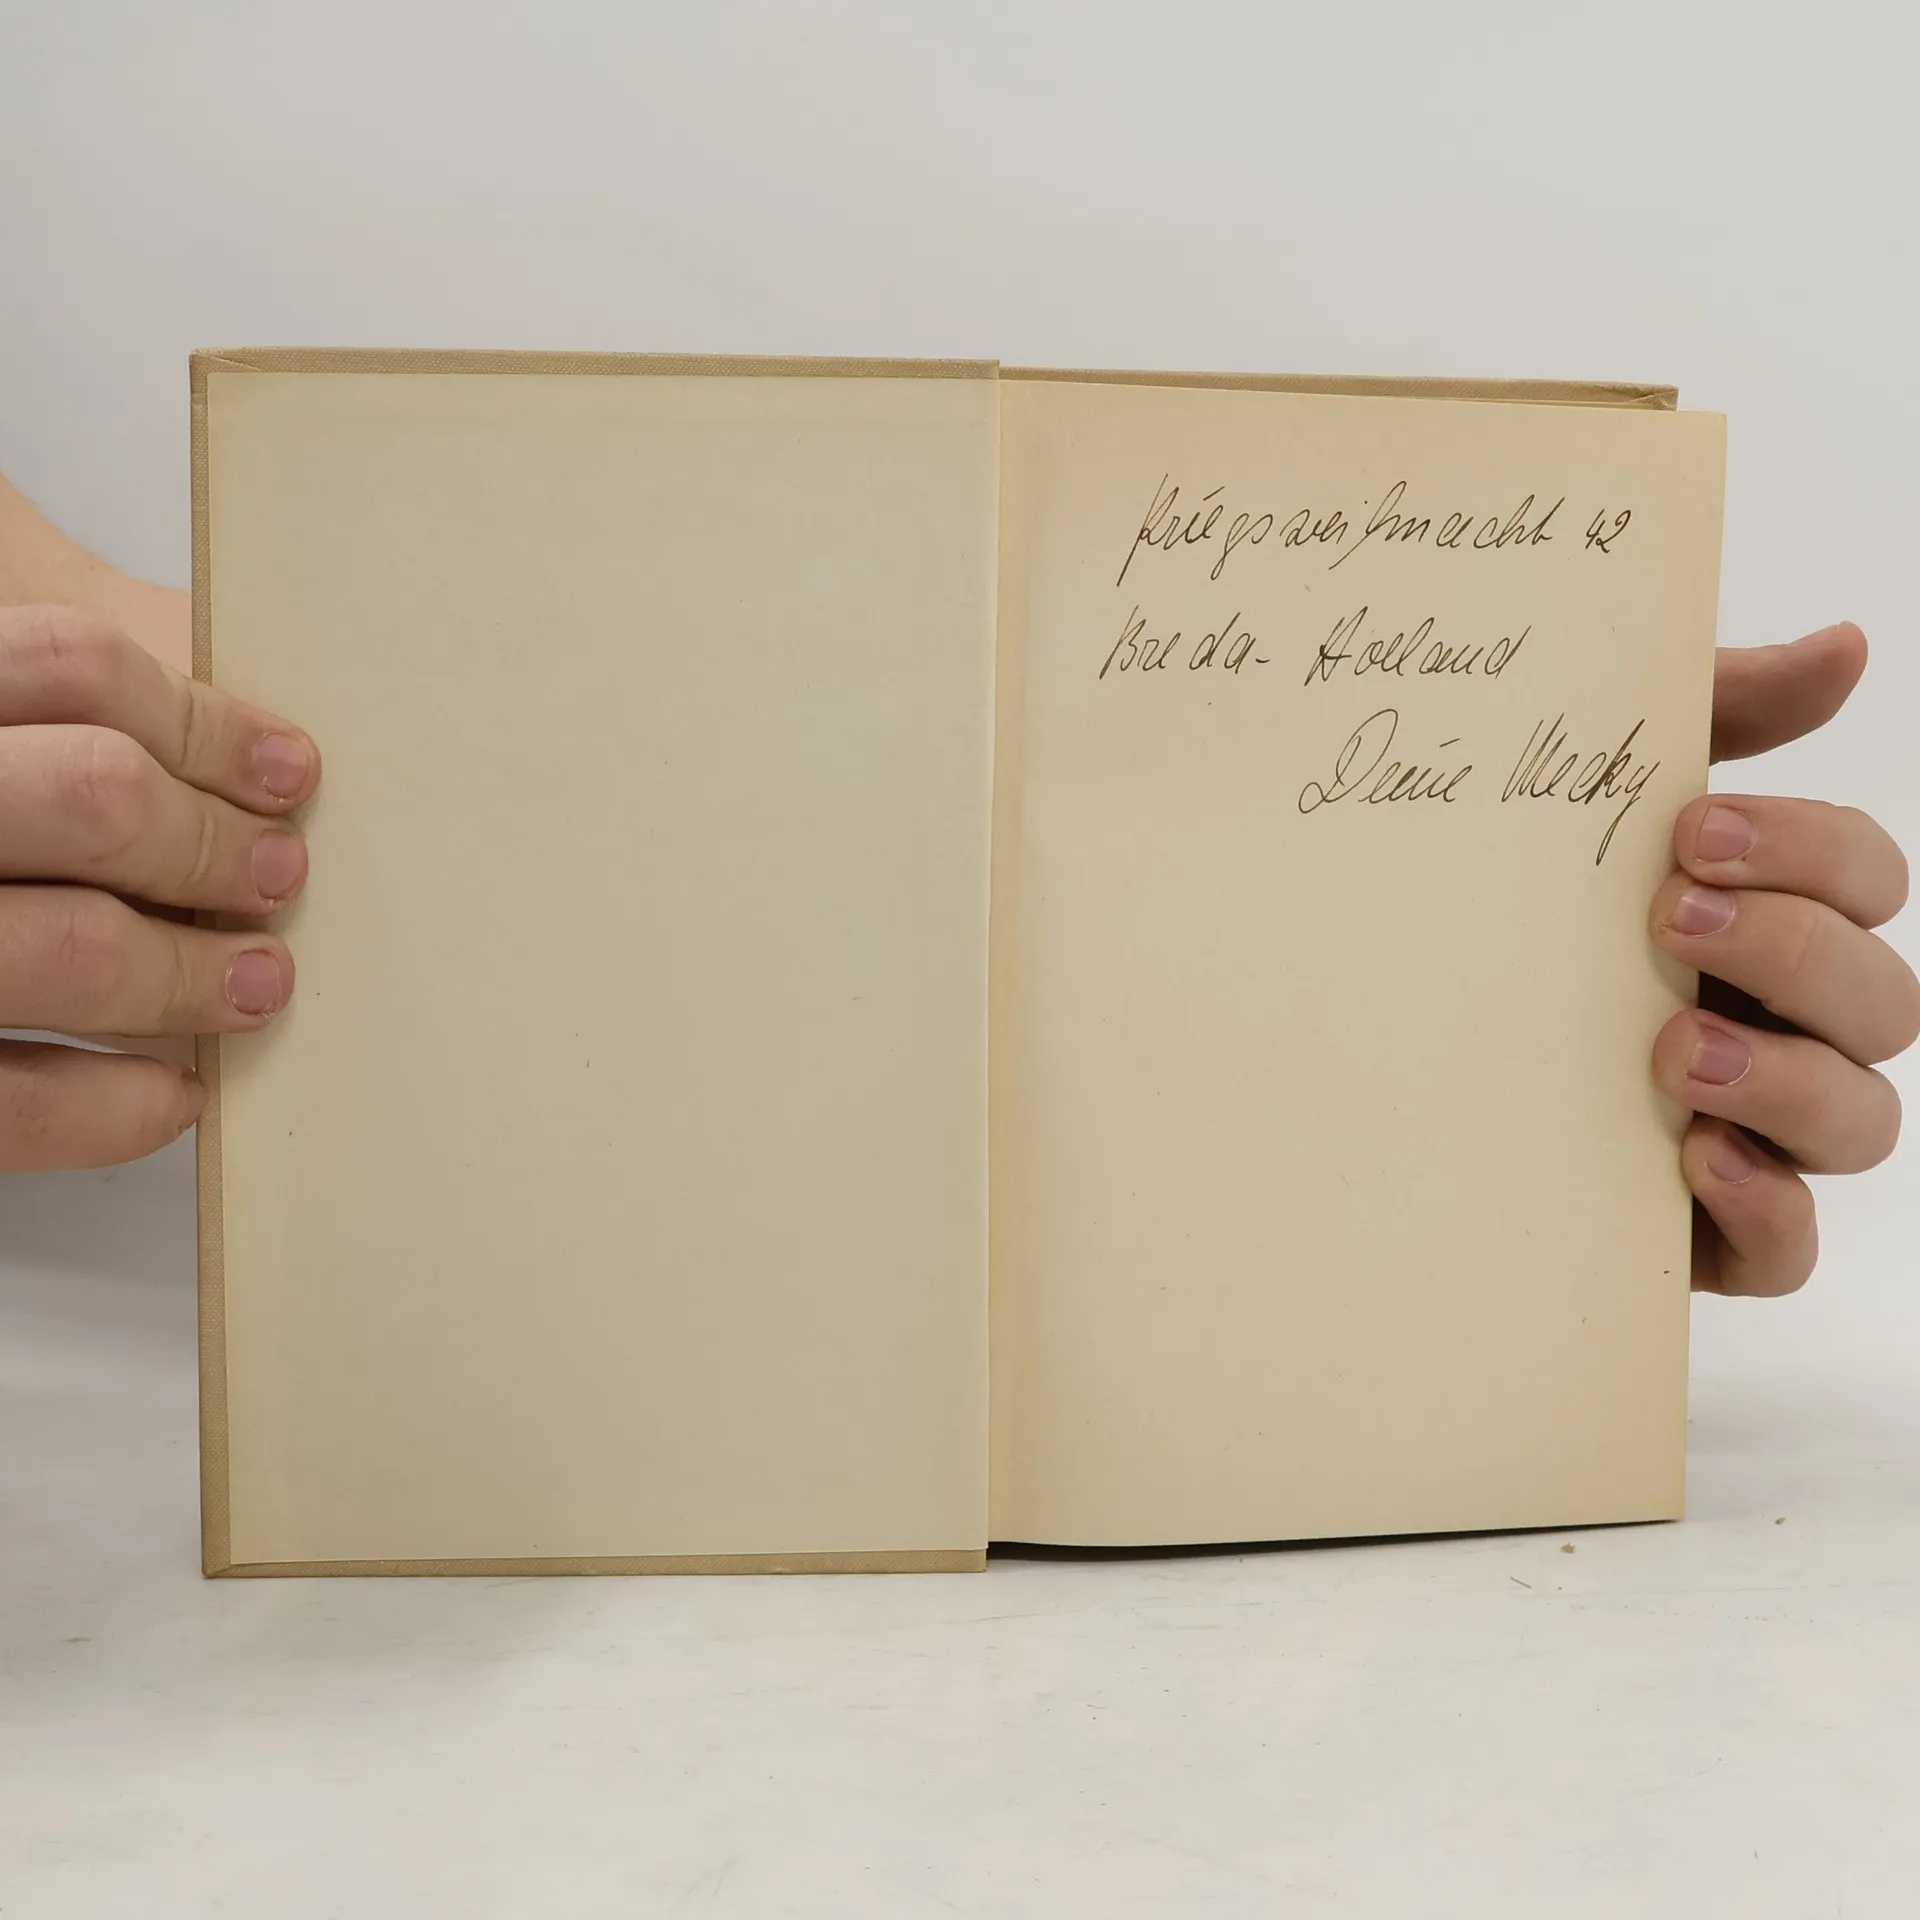 Kriegsweihnacht 42
Breda - Holland
Deine Mecky